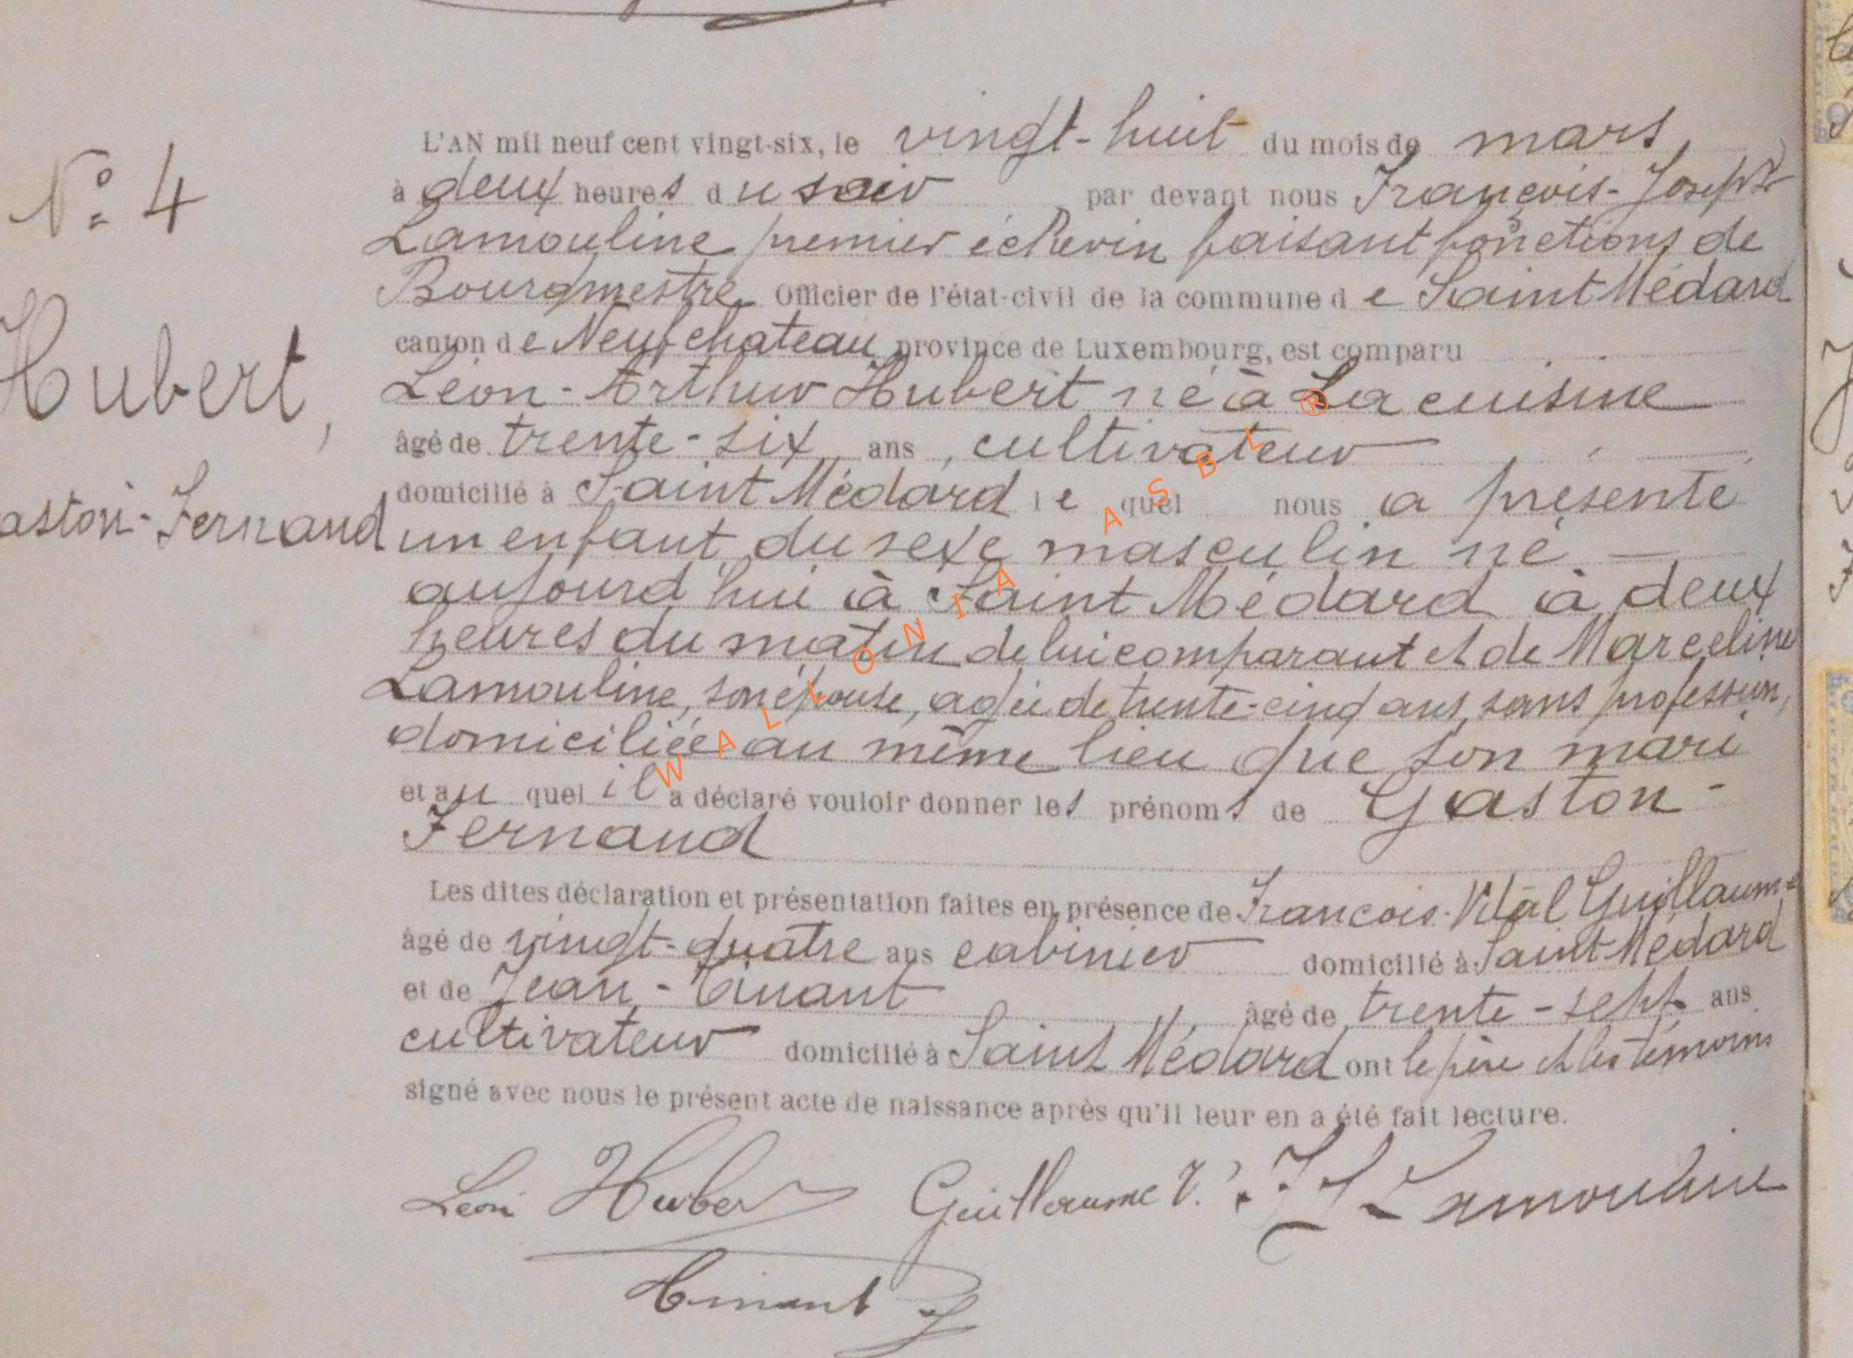 L'AN mil neuf cent vingt-six, le vingt-huit du mois de mars
N° 4
à deux heures du soir par devant nous François-Joseph
Lamouline premier échevin faisant fonctions de
Bourgmestre Officier de l'état-civil de la commune de Saint Médard
canton de Neufchateau province de Luxembourg, est comparu
Hubert,
Léon-Arthur Hubert né à Lacuisine
âgé de trente-six ans, cultivateur
domicilié à Saint Médard lequel nous a présenté
aston-Fernand
un enfant du sexe masculin né
aujourd'hui à Saint Médard à deux
heures du matin de lui comparant et de Marceline
Lamouline, son épouse, agée de trente-cinq ans, sans profession,
domiciliée au même lieu que son mari
et auquel il a déclaré vouloir donner les prénoms de Gaston-
Fernand
Les dites déclaration et présentation faites en présence de Francois-Vital Guillaume
âgé de vingt-quatre ans domicilié à Saint Médard
et de Jean-Tinant âgé de trente-sept ans
cultivateur domicilié à Saint Médard ont le père et les témoins
signé avec nous le présent acte de naissance après qu'il leur en a été fait lecture.
Léon Hubert Guillaume V. FJ Lamouline
Tinant J
WALLONIA ASBL ®